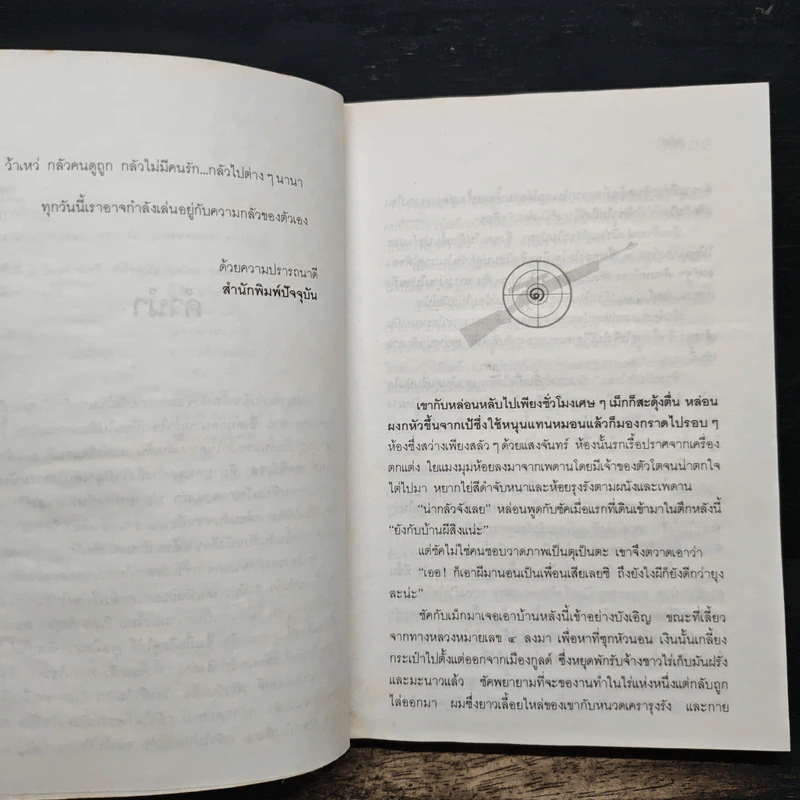 ว้าเหว่ กลัวคนดูถูก กลัวไม่มีคนรัก...กลัวไปต่าง ๆ นานา
ทุกวันนี้เราอาจกำลังเล่นอยู่กับความกลัวของตัวเอง
ด้วยความปรารถนาดี
สำนักพิมพ์ปัจจุบัน
๑
เขากับหล่อนหลับไปเพียงชั่วโมงเศษ ๆ เม็กก็สะดุ้งตื่น หล่อน
ผงกหัวขึ้นจากเป้ซึ่งใช้หนุนแทนหมอนแล้วก็มองกราดไปรอบ ๆ
ห้องซึ่งสว่างเพียงสลัว ๆ ด้วยแสงจันทร์ ห้องนั้นรกเรื้อปราศจากเครื่อง
ตกแต่ง ใยแมงมุมห้อยลงมาจากเพดานโดยมีเจ้าของตัวโตจนน่าตกใจ
ไต่ไปมา หยากไย่สีดำจับหนาและห้อยรุงรังตามผนังและเพดาน
“น่ากลัวจังเลย” หล่อนพูดกับชัคเมื่อแรกที่เดินเข้ามาในตึกหลังนี้
“ยังกับบ้านผีสิงแน่ะ”
แต่ชัคไม่ใช่คนชอบวาดภาพเป็นตุเป็นตะ เขาจึงตวาดเอาว่า
“เออ! ก็เอาผีมานอนเป็นเพื่อนเสียเลยซิ ถึงยังไงผีก็ยังดีกว่ายุง
ละน่ะ”
ชัคกับเม็กมาเจอเอาบ้านหลังนี้เข้าอย่างบังเอิญ ขณะที่เลี้ยว
จากทางหลวงหมายเลข ๔ ลงมา เพื่อหาที่ซุกหัวนอน เงินนั้นเกลี้ยง
กระเป๋าไปตั้งแต่ออกจากเมืองกูลด์ ซึ่งหยุดพักรับจ้างชาวไร่เก็บมันฝรั่ง
และมะนาวแล้ว ชัคพยายามที่จะของานทำในไร่แห่งหนึ่งแต่กลับถูก
ไล่ออกมา ผมซึ่งยาวเลื้อยไหล่ของเขากับหนวดเครารุงรัง และกาย